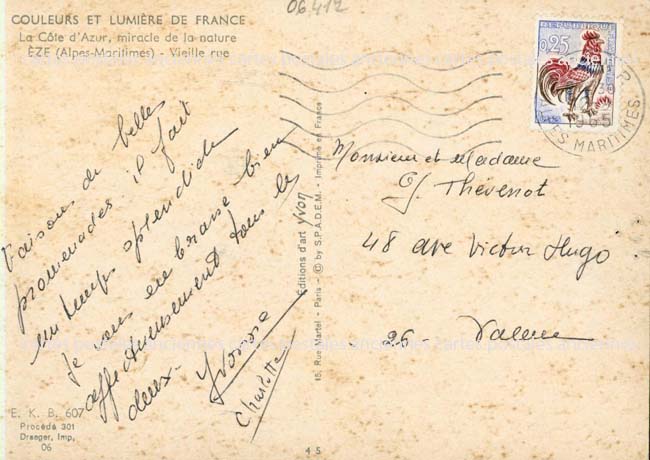 06.412
COULEURS ET LUMIÈRE DE FRANCE
La Côte d'Azur, miracle de la nature
ÈZE (Alpes-Maritimes) - Vieille rue
0,25
1965
ES MARITIMES
faisons de belles
promenades il fait
un temps splendide
je vous embrasse bien
affectueusement tous les
deux -
Yvonne
Charlotte
Editions d'art yvon
15, Rue Martel - Paris - © by S.P.A.D.E.M. - Imprimé en France
Monsieur et Madame
G. Thevenot
48 ave Victor Hugo
26 - Valence
E. K. B. 607
Procédé 301
Draeger, Imp,
06
45